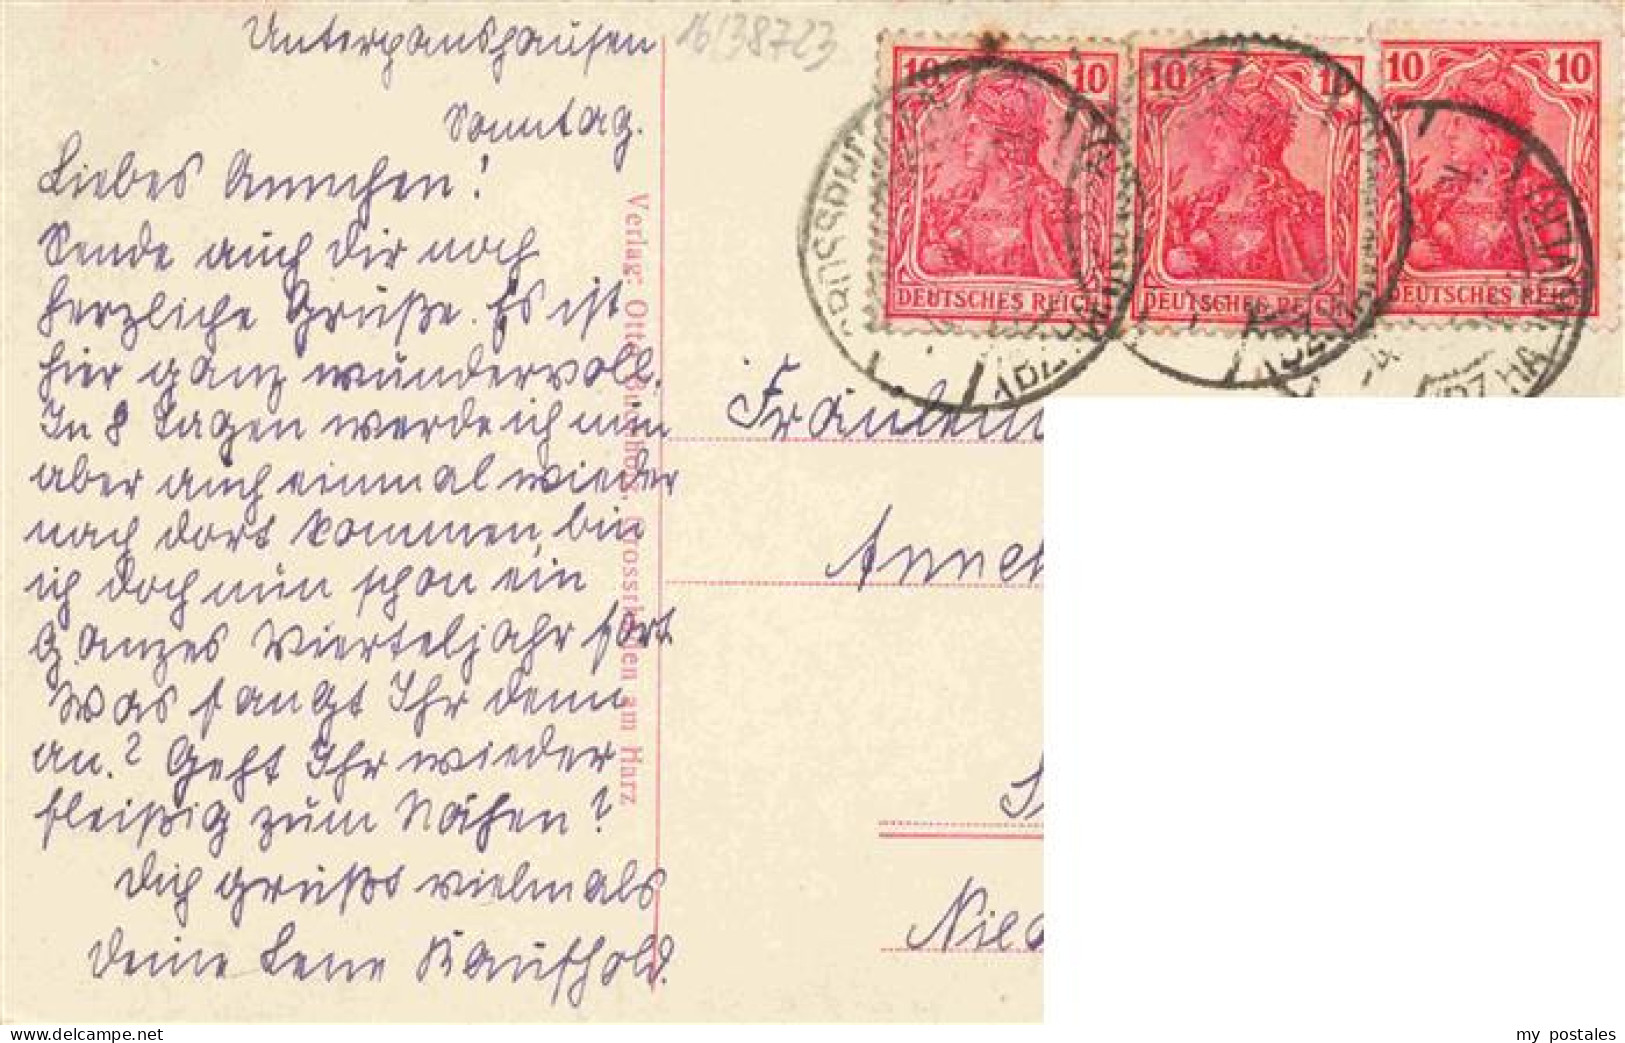 Unterpanshausen
Sonntag.
Liebes Annchen!
Sende auch dir noch
herzliche Grüße. Es ist
hier ganz wundervoll.
In 8 Tagen werde ich nun
aber auch einmal wieder
nach dort kommen, bin
ich doch nun schon ein
ganzes Vierteljahr fort.
Was fangt Ihr denn
an? Geht Ihr wieder
fleißig zum Nähen?
Dich grüßt vielmals
deine Lene Kaufhold.
Verlag: Otto Buchholz, Grossrhüden am Harz
16/38723
10 10
DEUTSCHES REICH
10 10
DEUTSCHES REICH
10 10
DEUTSCHES REICH
Fräulein
Annch
Nied
my postales